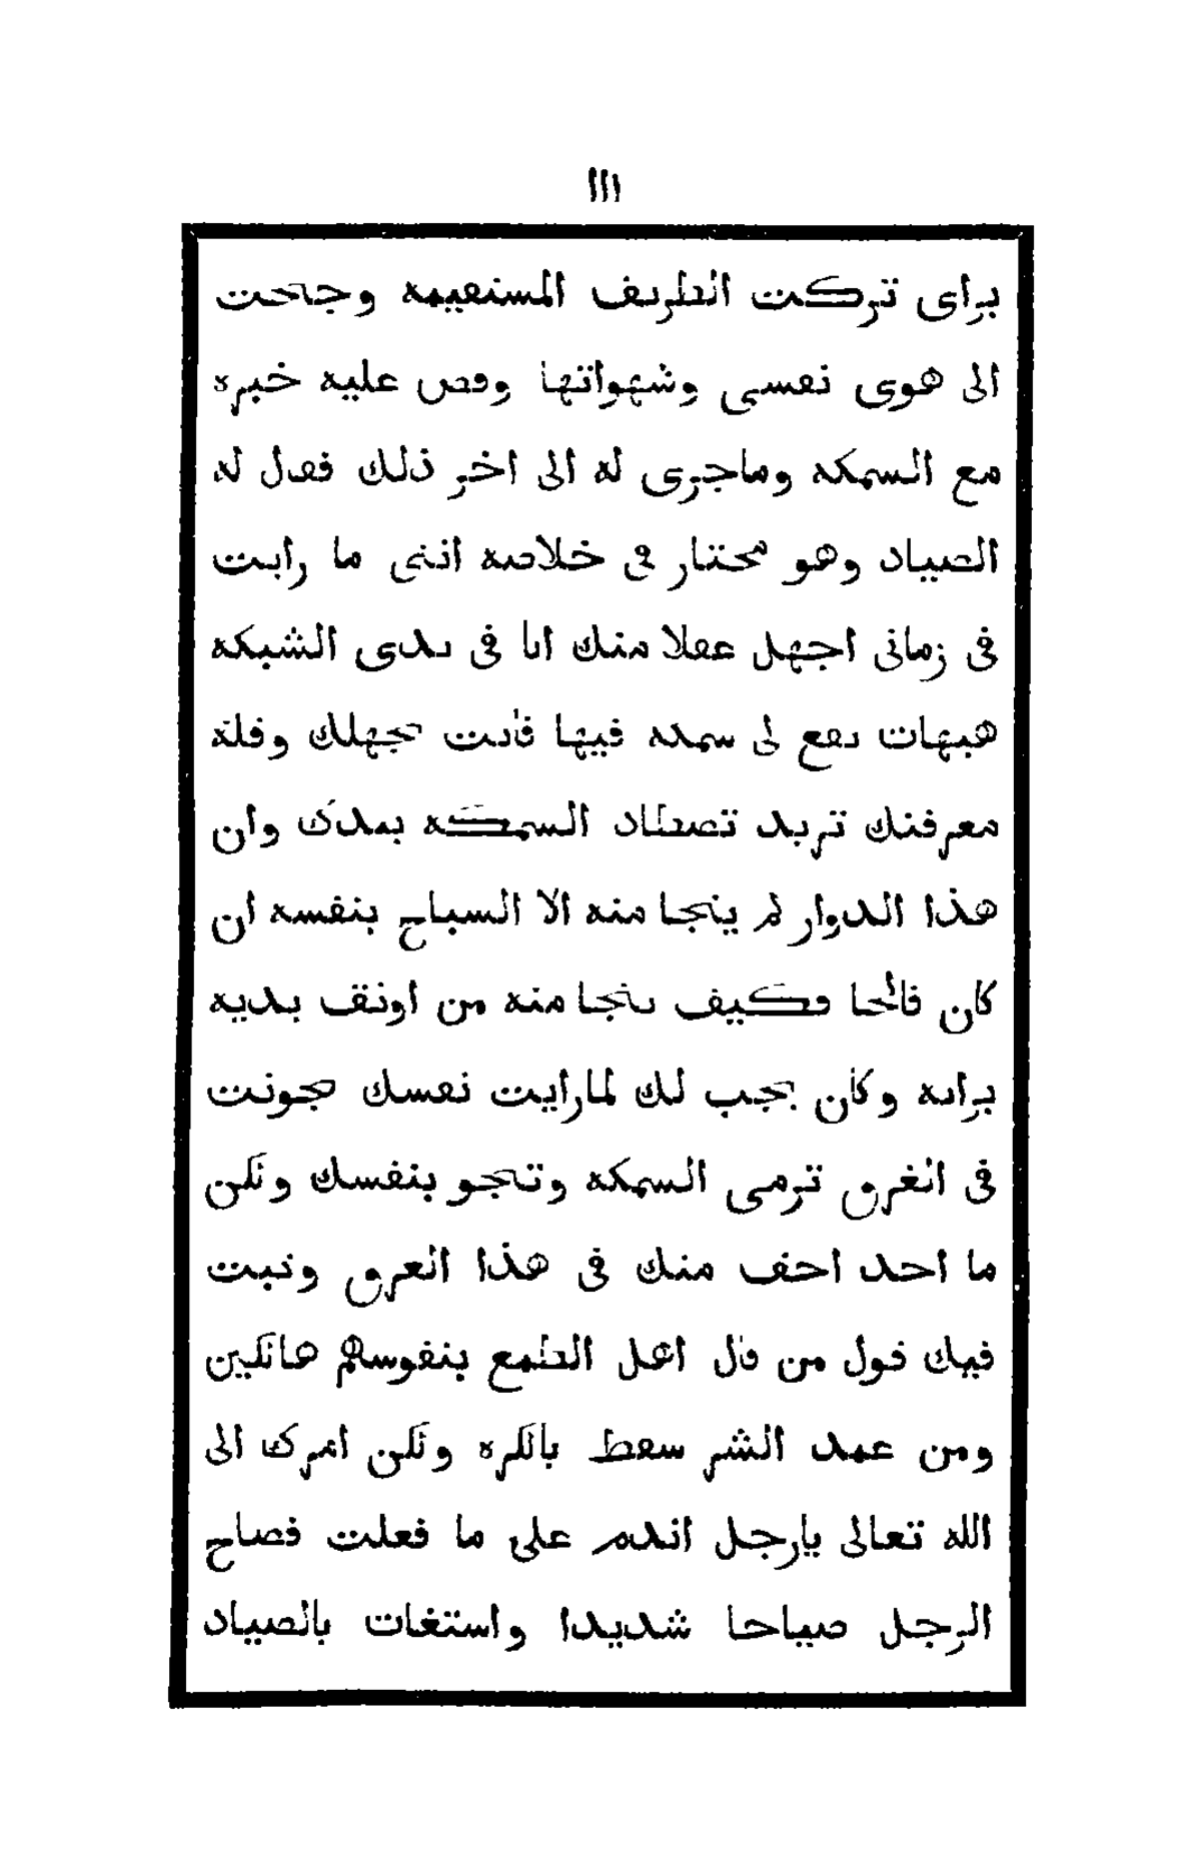 ١١١
براى تركت الطريق المستقيمه وجنحت
الى هوى نفسى وشهواتها وقص عليه خبره
مع السمكه وماجرى له الى اخر ذلك فقال له
الصياد وهو محتار فى خلاصه اننى ما رايت
فى زمانى اجهل عقلا منك انا فى يدى الشبكه
هيهات يقع لى سمكه فيها فانت بجهلك وقلة
معرفتك تريد تصطاد السمكه بيدك وان
هذا الدوار لم ينجا منه الا السباح بنفسه ان
كان فالحا فكيف ينجا منه من اوثق يديه
برايه وكان يجب لك لمارايت نفسك
فى الغرق ترمى السمكه وتنجو بنفسك ولكن
ما احد احق منك فى هذا الغرق وثبت
فيك قول من قال اهل الطمع بنفوسهم هالكين
ومن عمد الشر سقط بالكره ولكن امرك الى
الله تعالى يارجل اندم على ما فعلت فصاح
الرجل صياحا شديدا واستغاث بالصياد